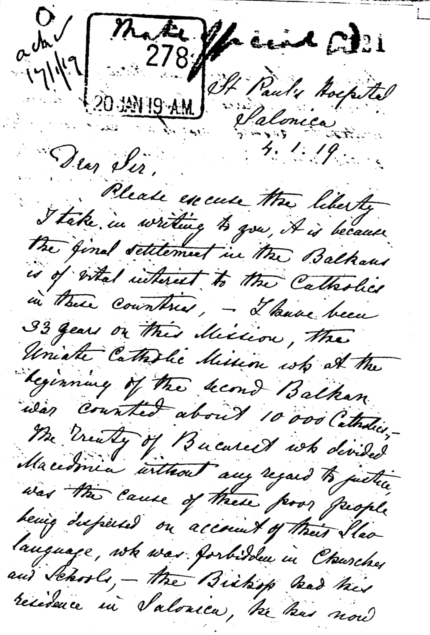 Make Special
ackd
17/1/19
278
20 JAN 19 A.M.
St Paul's Hospital
Salonica
4.1.19
Dear Sir,
Please excuse the liberty
I take in writing to you, it is because
the final settlement in the Balkans
is of vital interest to the Catholics
in these countries, - I have been
33 years on this Mission, the
Uniate Catholic Mission wh at the
beginning of the second Balkan
war counted about 10 000 Catholics,-
The Treaty of Bucarest wh divided
Macedonia without any regard to justice,
was the cause of these poor people
being dispersed on account of their Slav
language, wh was forbidden in Churches
and Schools, - the Bishop had his
residence in Salonica, he has now